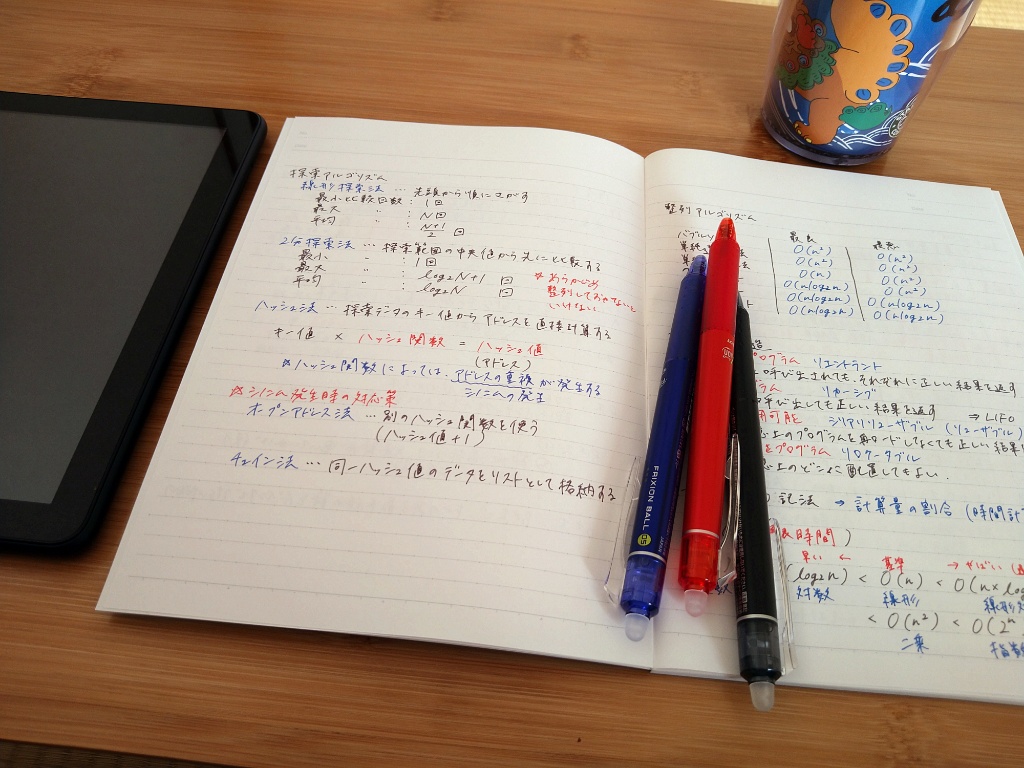 探索アルゴリズム
線形探索法 … 先頭から順にさがす
最小比較回数 : 1回
最大 〃 : N回
平均 〃 : N+1/2 回
2分探索法 … 探索範囲の中央値から先に比較する
最小 〃 : 1回
最大 〃 : log2N+1 回
平均 〃 : log2N 回
※あらかじめ
整列しておかないと
いけない
ハッシュ法 … 探索データのキー値からアドレスを直接計算する
キー値 × ハッシュ関数 = ハッシュ値
(アドレス)
※ハッシュ関数によっては、アドレスの重複が発生する
シノニムの発生
※シノニム発生時の対応策
オープンアドレス法 … 別のハッシュ関数を使う
(ハッシュ値+1)
チェイン法 … 同一ハッシュ値のデータをリストとして格納する
整列アルゴリズム
バブルソ
最良 最悪
O(n²) O(n²)
O(n²) O(n²)
O(n) O(n²)
O(nlog2n) O(n²)
O(nlog2n) O(nlog2n)
O(nlog2n) O(nlog2n)
プログラム リエントラント
呼び出されても、それぞれに正しい結果を返す
ラム リカーシブ
呼び出しても正しい結果を返す ⇒ LIFO
用可能 シリアリリユーザブル (リユーザブル)
上のプログラムを再ロードしなくても正しい結果
プログラム リロケータブル
上のどこに配置してもよい
記法 → 計算量の割合 (時間計
時間)
早い ← 基準 → やばい
(log2n) < O(n) < O(n×log
対数 線形 線形
< O(n²) < O(2ⁿ
二乗 指数
FRIXION BALL 05
JAPAN